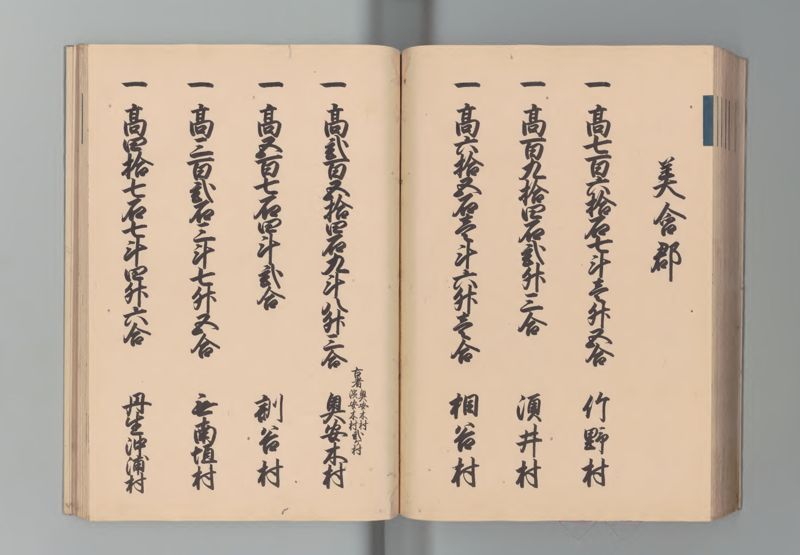 美含郡
一 高七百六拾石七斗壱升五合 竹野村
一 高百九拾四石弐升三合 須井村
一 高六拾五石壱斗六升壱合 相谷村
一 高弐百五拾四石九斗八升三合 奥安木村
古者 奥安木村
浜安木村 弐ヶ村
一 高五百七石四斗弐合 訓谷村
一 高三百弐石三斗七升五合 無南垣村
一 高四拾七石七斗四升六合 丹生沖浦村